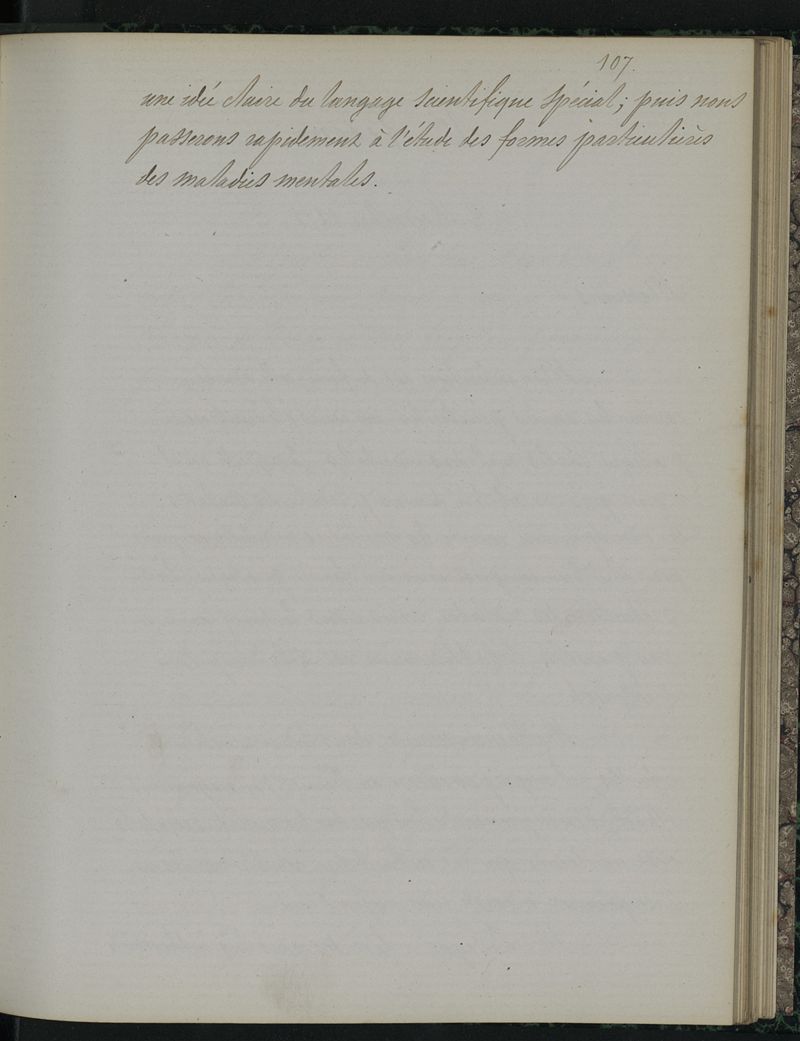 107.
une idée claire du langage scientifique spécial; puis nous
passerons rapidement à l'étude des formes particulières
des maladies mentales.